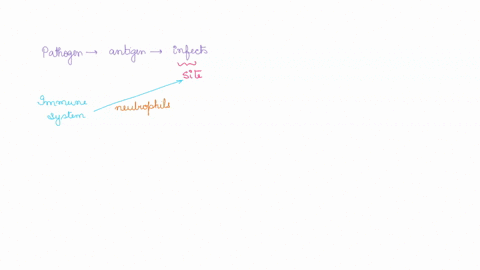 Pathogen → antigen → infects
site
Immune
system
neutrophils